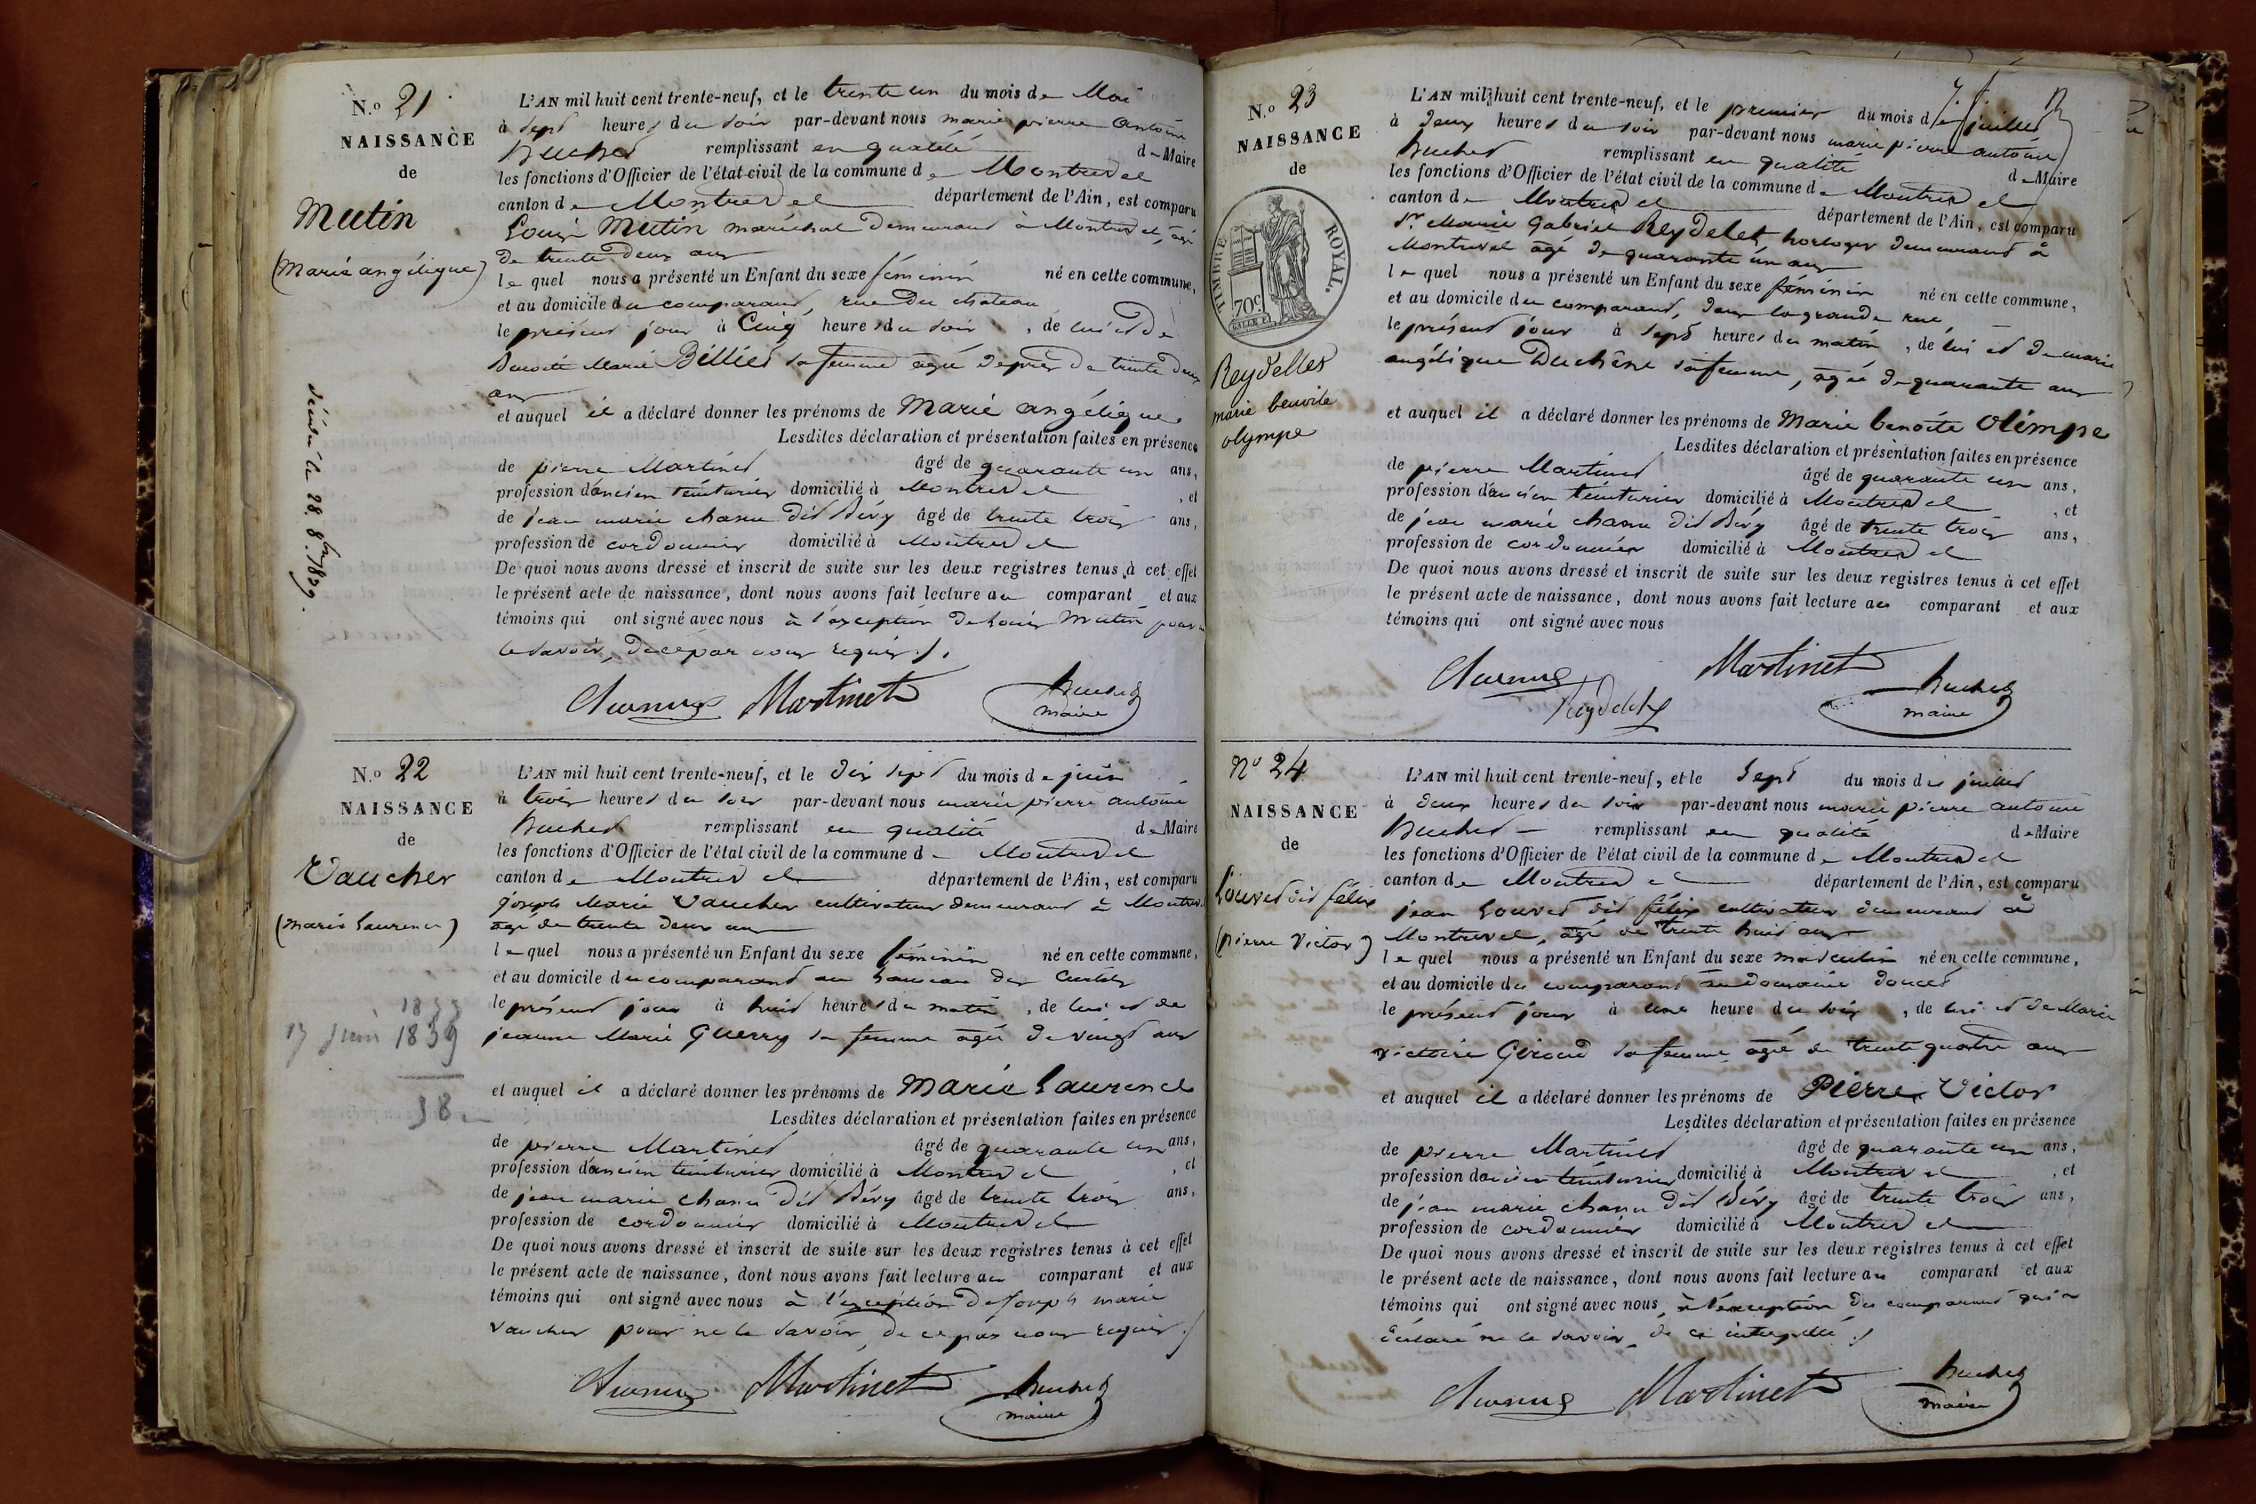 N.o 21
NAISSANCE
de
Mutin
(Marie angélique)
décédée le 28. 8.bre 1839.
L'AN mil huit cent trente-neuf, et le trente un du mois de Mai
à sept heures du soir par-devant nous marie pierre antoine
Buchet remplissant en qualité de Maire
les fonctions d'Officier de l'état-civil de la commune de Montrevel
canton de Montrevel département de l'Ain, est comparu
Louis Mutin maréchal demeurant à Montrevel, agé
de trente deux ans
le quel nous a présenté un Enfant du sexe féminin né en cette commune,
et au domicile du comparant, rue du chateau
le présent jour à Cinq heures du soir, de lui et de
Benoite Marie Billiet sa femme agée depres de trente deux
ans
et auquel il a déclaré donner les prénoms de Marie angélique
Lesdites déclaration et présentation faites en présence
de pierre Martinet âgé de quarante un ans,
profession d'ancien teinturier domicilié à Montrevel, et
de jean marie chanu dit Bévy âgé de trente trois ans,
profession de cordonnier domicilié à Montrevel
De quoi nous avons dressé et inscrit de suite sur les deux registres tenus à cet effet
le présent acte de naissance, dont nous avons fait lecture au comparant et aux
témoins qui ont signé avec nous à l'exception de Louis Mutin pour
le savoir, de ce par nous requis ./.
Martinet Buchet
maire
N.o 22
NAISSANCE
de
Vaucher
(marie Laurence)
1839
17 juin
38
L'AN mil huit cent trente-neuf, et le dix sept du mois de juin
à trois heures du soir par-devant nous marie pierre antoine
Buchet remplissant en qualité de Maire
les fonctions d'Officier de l'état civil de la commune de Montrevel
canton de Montrevel département de l'Ain, est comparu
joseph Marie Vaucher cultivateur demeurant à Montrevel
agé de trente deux ans
le quel nous a présenté un Enfant du sexe féminin né en cette commune,
et au domicile du comparant au hameau des
le présent jour à huit heures du matin, de lui et de
jeanne Marie Guerry sa femme agée de vingt ans
et auquel il a déclaré donner les prénoms de Marie Laurence
Lesdites déclaration et présentation faites en présence
de pierre Martinet âgé de quarante un ans,
profession d'ancien teinturier domicilié à Montrevel, et
de jean marie chanu dit Bévy âgé de trente trois ans,
profession de cordonnier domicilié à Montrevel
De quoi nous avons dressé et inscrit de suite sur les deux registres tenus à cet effet
le présent acte de naissance, dont nous avons fait lecture au comparant et aux
témoins qui ont signé avec nous à l'exception de Joseph marie
vaucher pour ne le savoir, de ce par nous requis ./
Martinet Buchet
maire
N.o 23
NAISSANCE
de
TIMBRE ROYAL.
70c.
Reydellet
marie benoite
olympe
L'AN mil huit cent trente-neuf, et le premier du mois de juillet
à deux heures du soir par-devant nous marie pierre antoine
Buchet remplissant en qualité de Maire
les fonctions d'Officier de l'état civil de la commune de Montrevel
canton de Montrevel département de l'Ain, est comparu
Sr. Marie Gabriel Reydelet, horloger demeurant à
Montrevel agé de quarante un ans
le quel nous a présenté un Enfant du sexe féminin né en cette commune,
et au domicile du comparant, dans la grande rue,
le présent jour à sept heures du matin, de lui et de marie
angélique Duchêne sa femme, agée de quarante ans
et auquel il a déclaré donner les prénoms de Marie benoîte Olimpe
Lesdites déclaration et présentation faites en présence
de pierre Martinet âgé de quarante un ans,
profession d'ancien teinturier domicilié à Montrevel, et
de jean marie chanu dit Bévy âgé de trente trois ans,
profession de cordonnier domicilié à Montrevel
De quoi nous avons dressé et inscrit de suite sur les deux registres tenus à cet effet
le présent acte de naissance, dont nous avons fait lecture au comparant et aux
témoins qui ont signé avec nous
Martinet Buchet
Reydelet maire
No 24
NAISSANCE
de
Louvet dit félix
(pierre Victor)
L'AN mil huit cent trente-neuf, et le sept du mois de juillet
à deux heures du soir par-devant nous marie pierre antoine
Buchet remplissant en qualité de Maire
les fonctions d'Officier de l'état civil de la commune de Montrevel
canton de Montrevel département de l'Ain, est comparu
jean Louvet dit félix cultivateur demeurant à
Montrevel, agé de trente huit ans
le quel nous a présenté un Enfant du sexe masculin né en cette commune,
et au domicile du comparant au domaine
le présent jour à une heure du soir, de lui et de Marie
victoire Giroud sa femme agée de trente quatre ans
et auquel il a déclaré donner les prénoms de Pierre Victor
Lesdites déclaration et présentation faites en présence
de pierre Martinet âgé de quarante un ans,
profession d'ancien teinturier domicilié à Montrevel, et
de jean marie chanu dit Bévy âgé de trente trois ans,
profession de cordonnier domicilié à Montrevel
De quoi nous avons dressé et inscrit de suite sur les deux registres tenus à cet effet
le présent acte de naissance, dont nous avons fait lecture au comparant et aux
témoins qui ont signé avec nous, à l'exception du comparant qui a
déclaré ne le savoir de ce interpellé ./
Martinet Buchet
maire